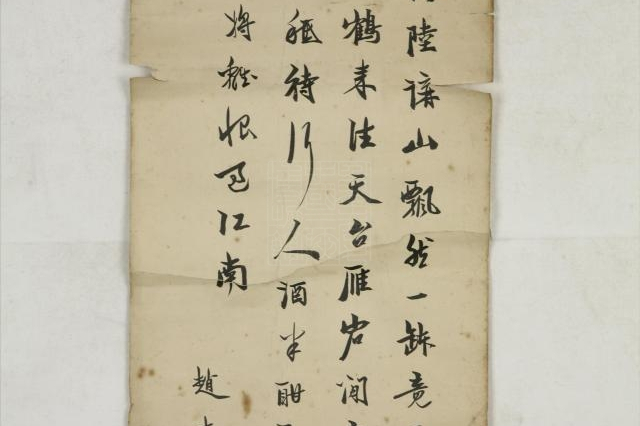 陸講山飄然一缽竟
鶴来往天台雁宕間
秪待行人酒半酣
將離恨過江南
趙